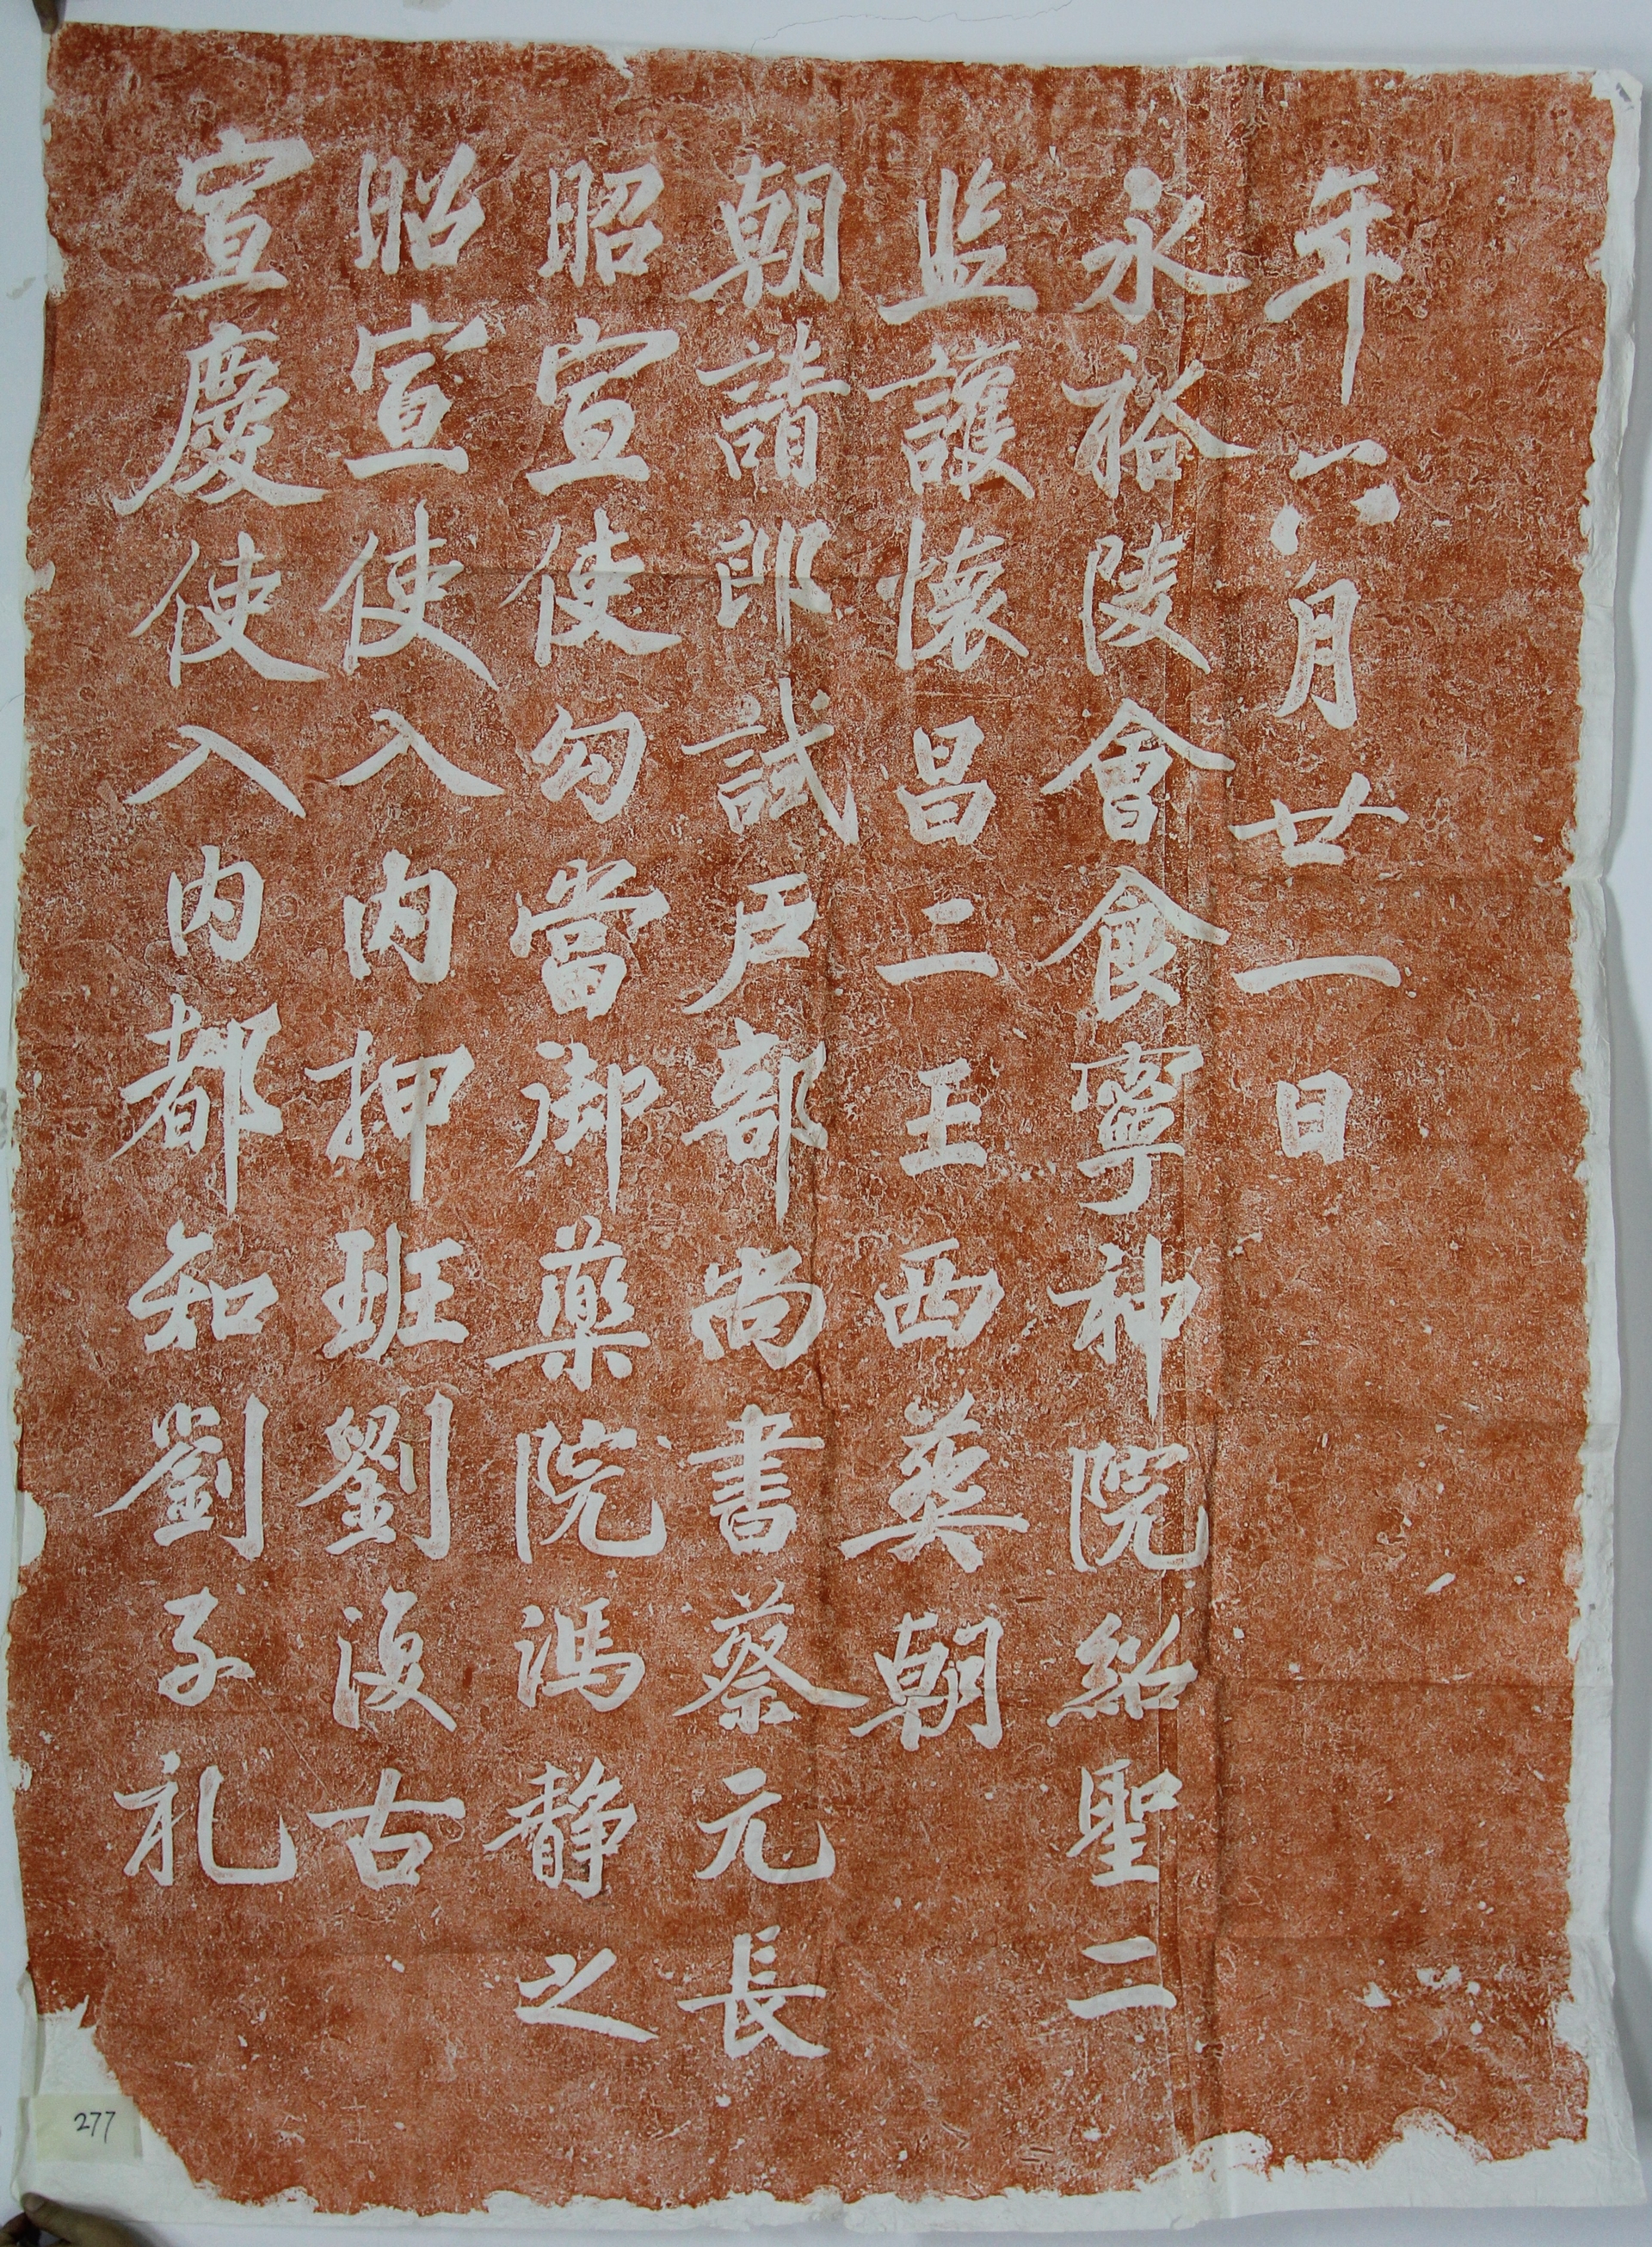 宣慶使入内都知劉子礼
昭宣使入内押班劉復古
昭宣使勾當御藥院馮静之
朝請郎試戶部尚書蔡元長
監護懷昌二王西葬朝
永裕陵會食寧神院紹聖二
年六月廿一日
277